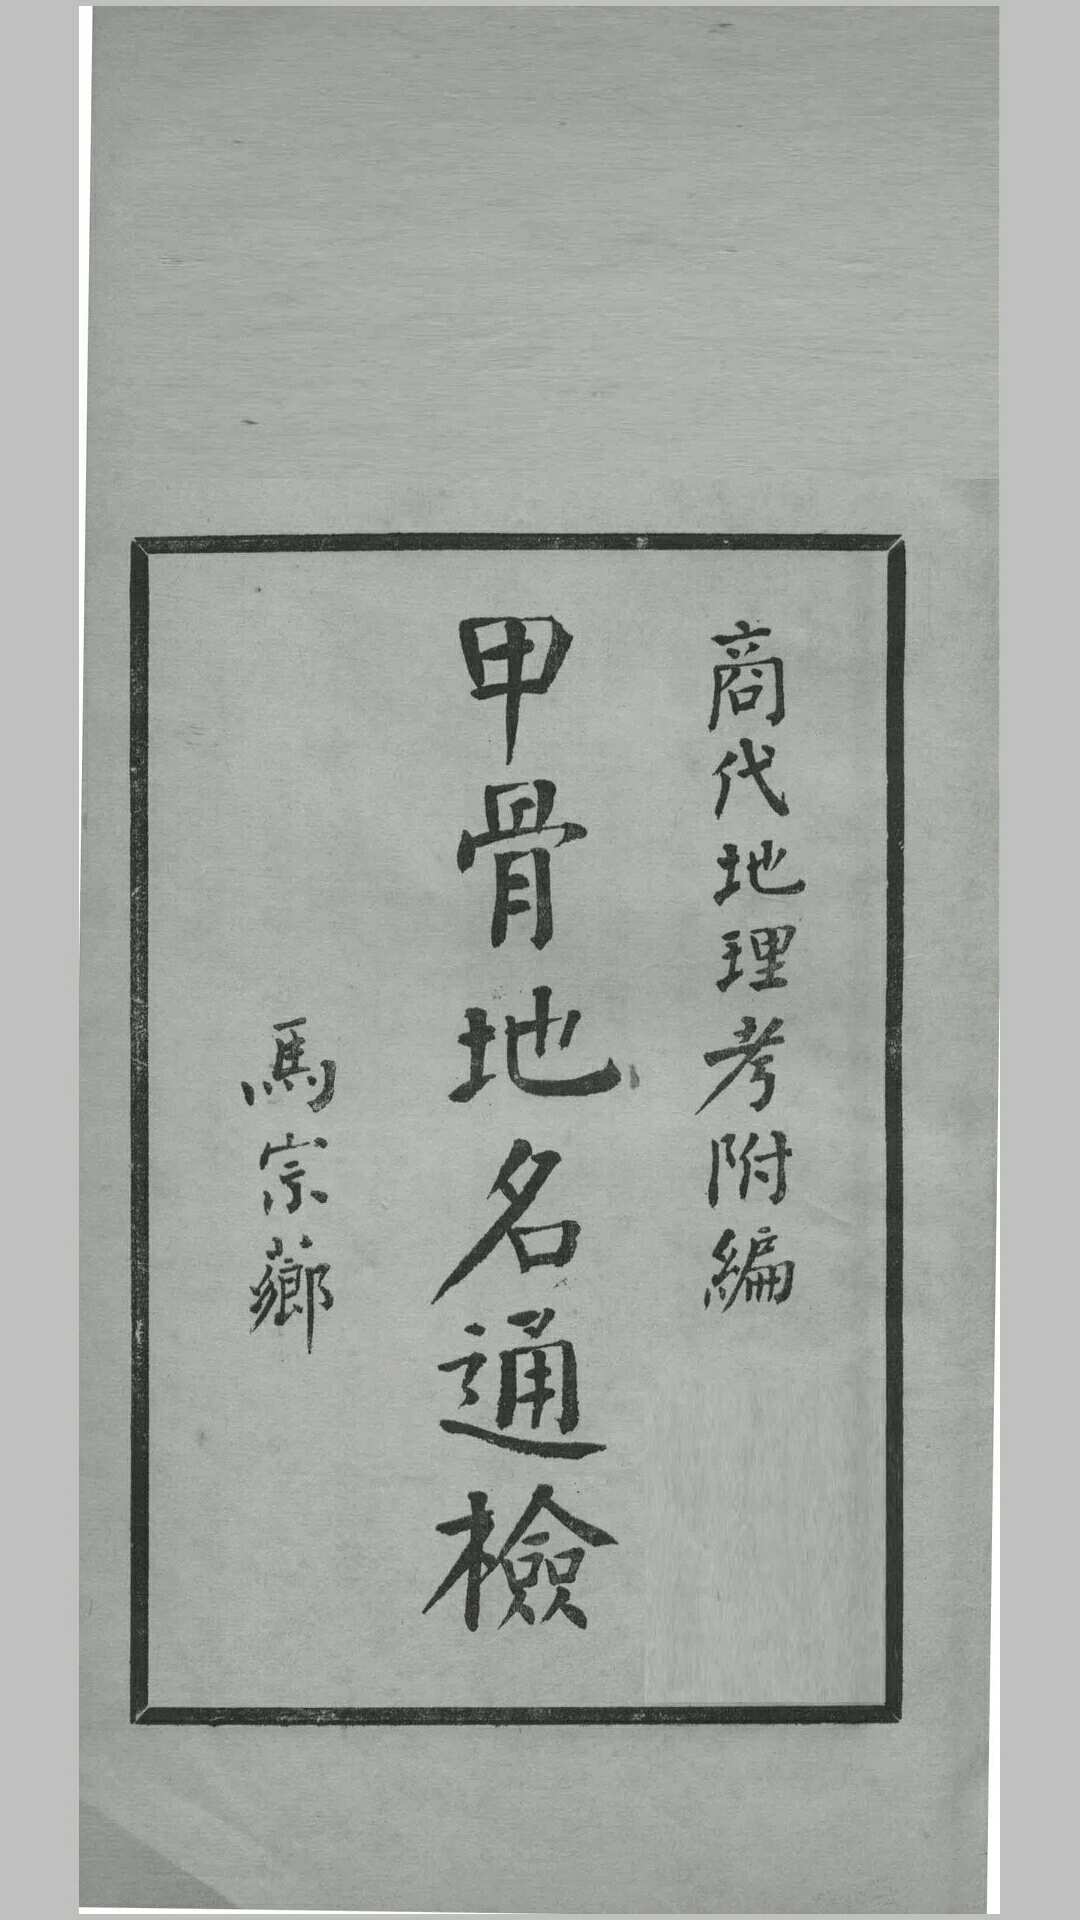 商代地理考附編
甲骨地名通檢
馬宗薌